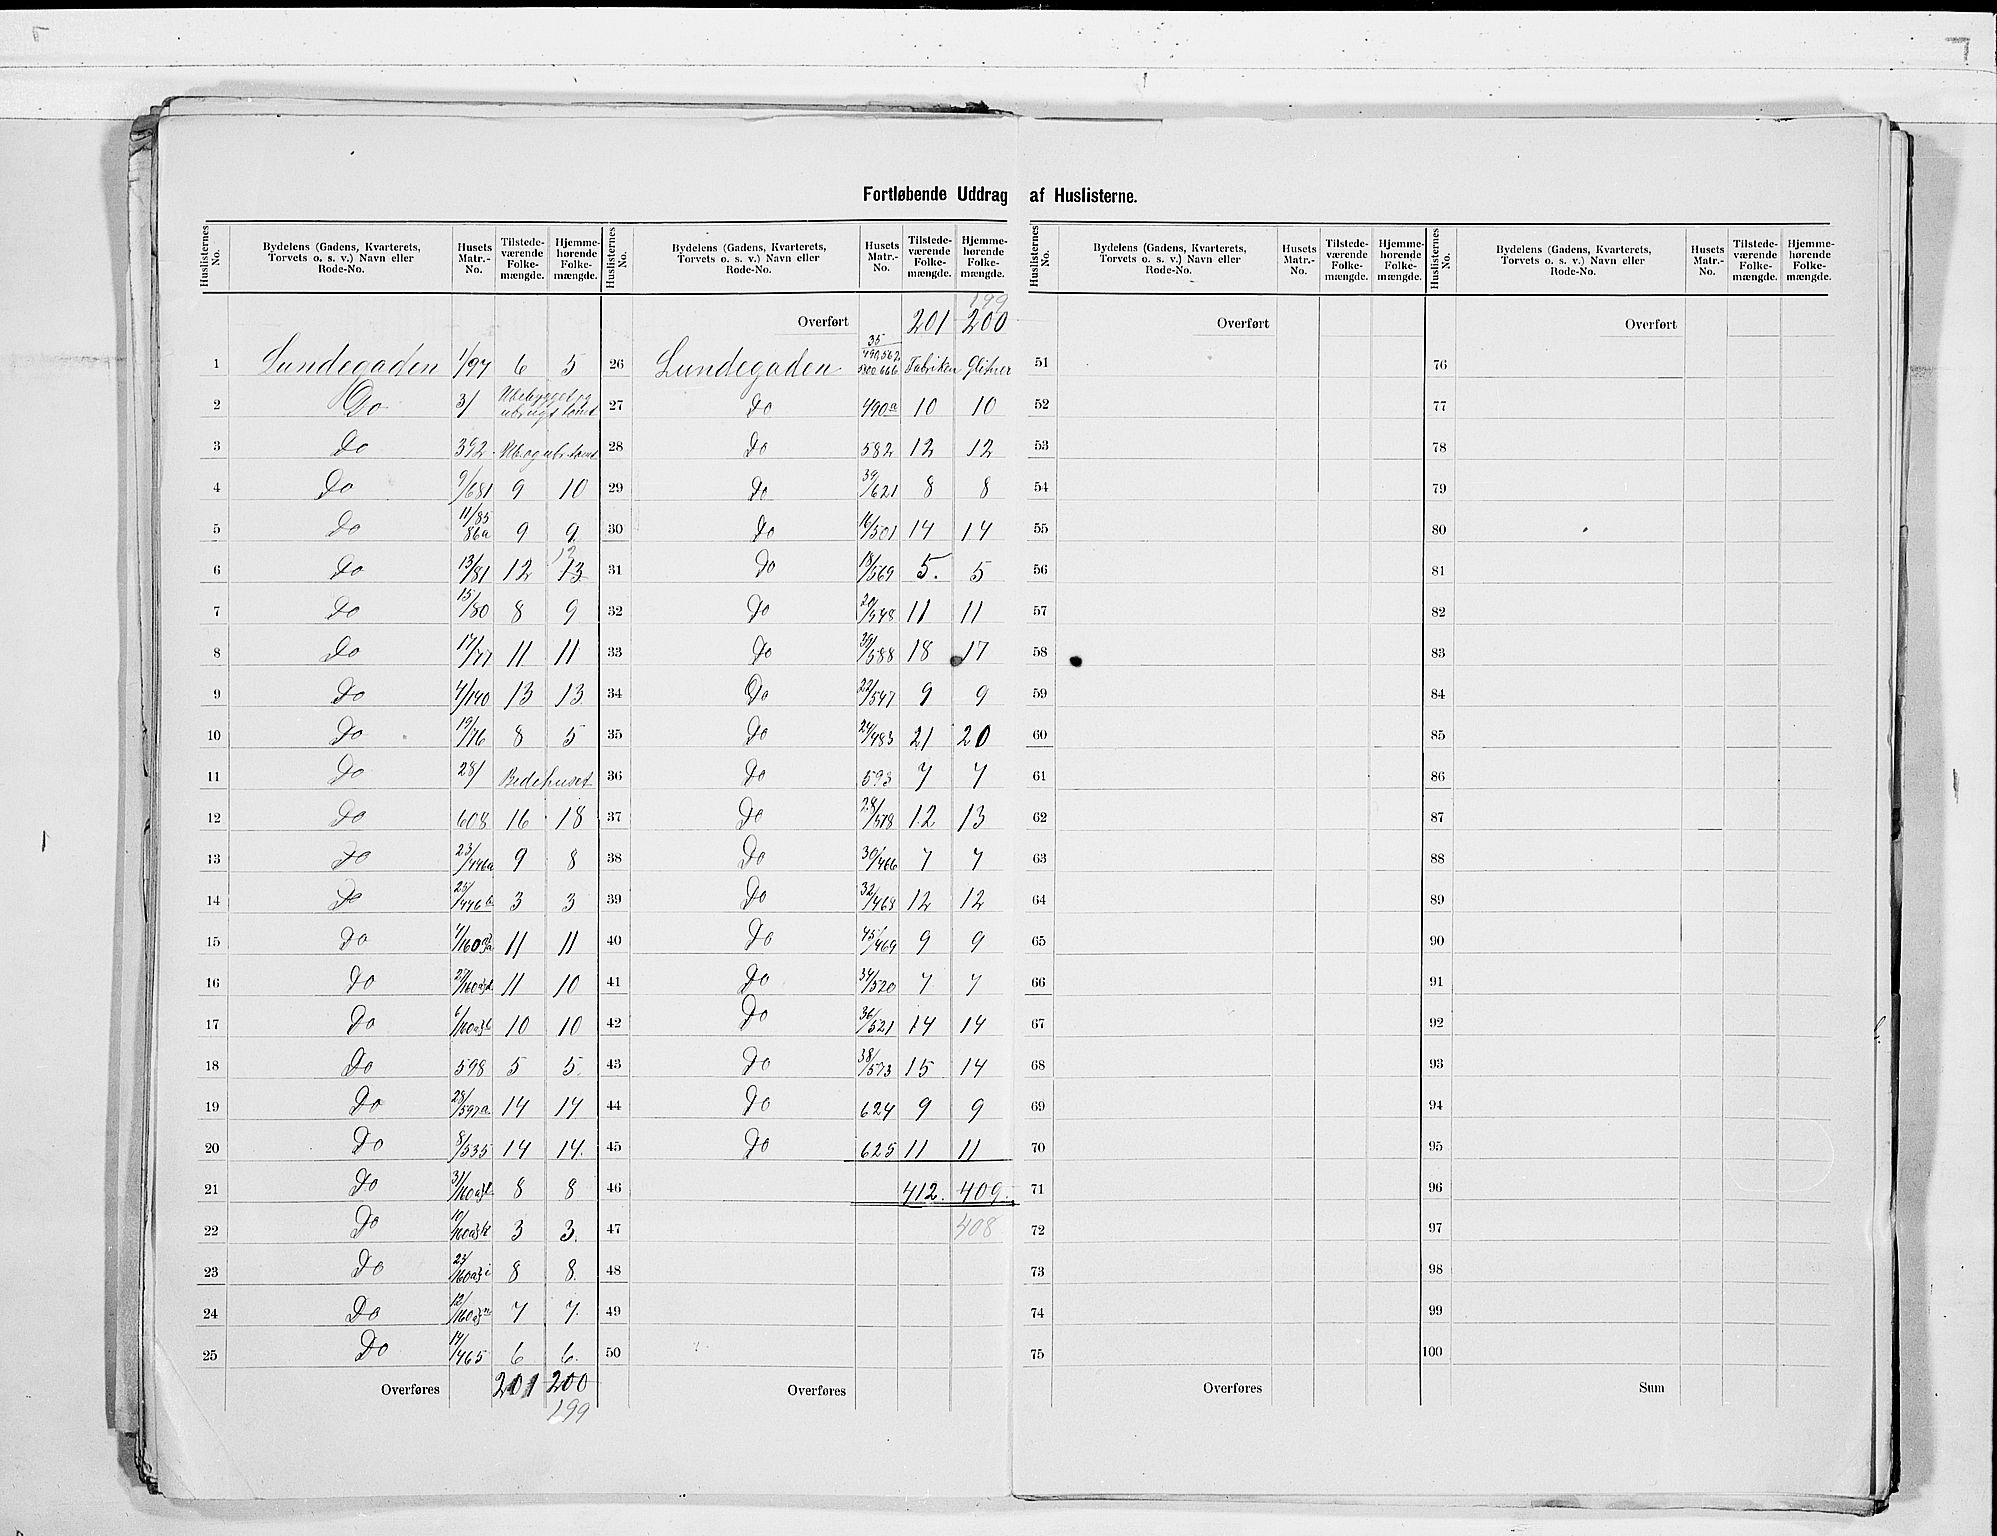 Fortløbende Uddrag af Huslisterne.
Huslisternes No. Bydelens (Gadens, Kvarterets, Torvets o. s. v.) Navn eller Rode-No. Husets Matr.-No. Tilstedeværende Folkemængde. Hjemmehørende Folkemængde.
1 Lundegaden 1/97 6 5
2 Do 3/ Ubebygget og ubrugt tomt
3 Do 392 Ub. og ubr. tomt
4 Do 9/681 9 10
5 Do 11/85 86a 9 9
6 Do 13/81 12 13 12
7 Do 15/80 8 9
8 Do 17/77 11 11
9 Do 4/140 13 13
10 Do 19/76 8 5
11 Do 28/ Bedehuset
12 Do 608 16 18
13 Do 23/446a 9 8
14 Do 25/446b 3 3
15 Do 11 11
16 Do 11 10
17 Do 10 10
18 Do 598 5 5
19 Do 28/597a 14 14
20 Do 8/535 14 14
21 Do 8 8
22 Do 3 3
23 Do 8 8
24 Do 7 7
25 Do 14/465 6 6
Overføres 201 200
199
Huslisternes No. Bydelens (Gadens, Kvarterets, Torvets o. s. v.) Navn eller Rode-No. Husets Matr.-No. Tilstedeværende Folkemængde. Hjemmehørende Folkemængde.
199
Overført 201 200
26 Lundegaden 35 490, 562 Fabriken Glitner
27 Do 490a 10 10
28 Do 582 12 12
29 Do 39/621 8 8
30 Do 16/501 14 14
31 Do 18/569 5 5
32 Do 20/548 11 11
33 Do 39/588 18 17
34 Do 22/547 9 9
35 Do 24/483 21 20
36 Do 593 7 7
37 Do 28/578 12 13
38 Do 30/466 7 7
39 Do 32/468 12 12
40 Do 45/469 9 9
41 Do 34/520 7 7
42 Do 36/521 14 14
43 Do 38/573 15 14
44 Do 624 9 9
45 Do 625 11 11
46 412 409
47 408
48
49
50
Overføres
Huslisternes No. Bydelens (Gadens, Kvarterets, Torvets o. s. v.) Navn eller Rode-No. Husets Matr.-No. Tilstedeværende Folkemængde. Hjemmehørende Folkemængde.
Overført
51
52
53
54
55
56
57
58
59
60
61
62
63
64
65
66
67
68
69
70
71
72
73
74
75
Overføres
Huslisternes No. Bydelens (Gadens, Kvarterets, Torvets o. s. v.) Navn eller Rode-No. Husets Matr.-No. Tilstedeværende Folkemængde. Hjemmehørende Folkemængde.
Overført
76
77
78
79
80
81
82
83
84
85
86
87
88
89
90
91
92
93
94
95
96
97
98
99
100
Sum